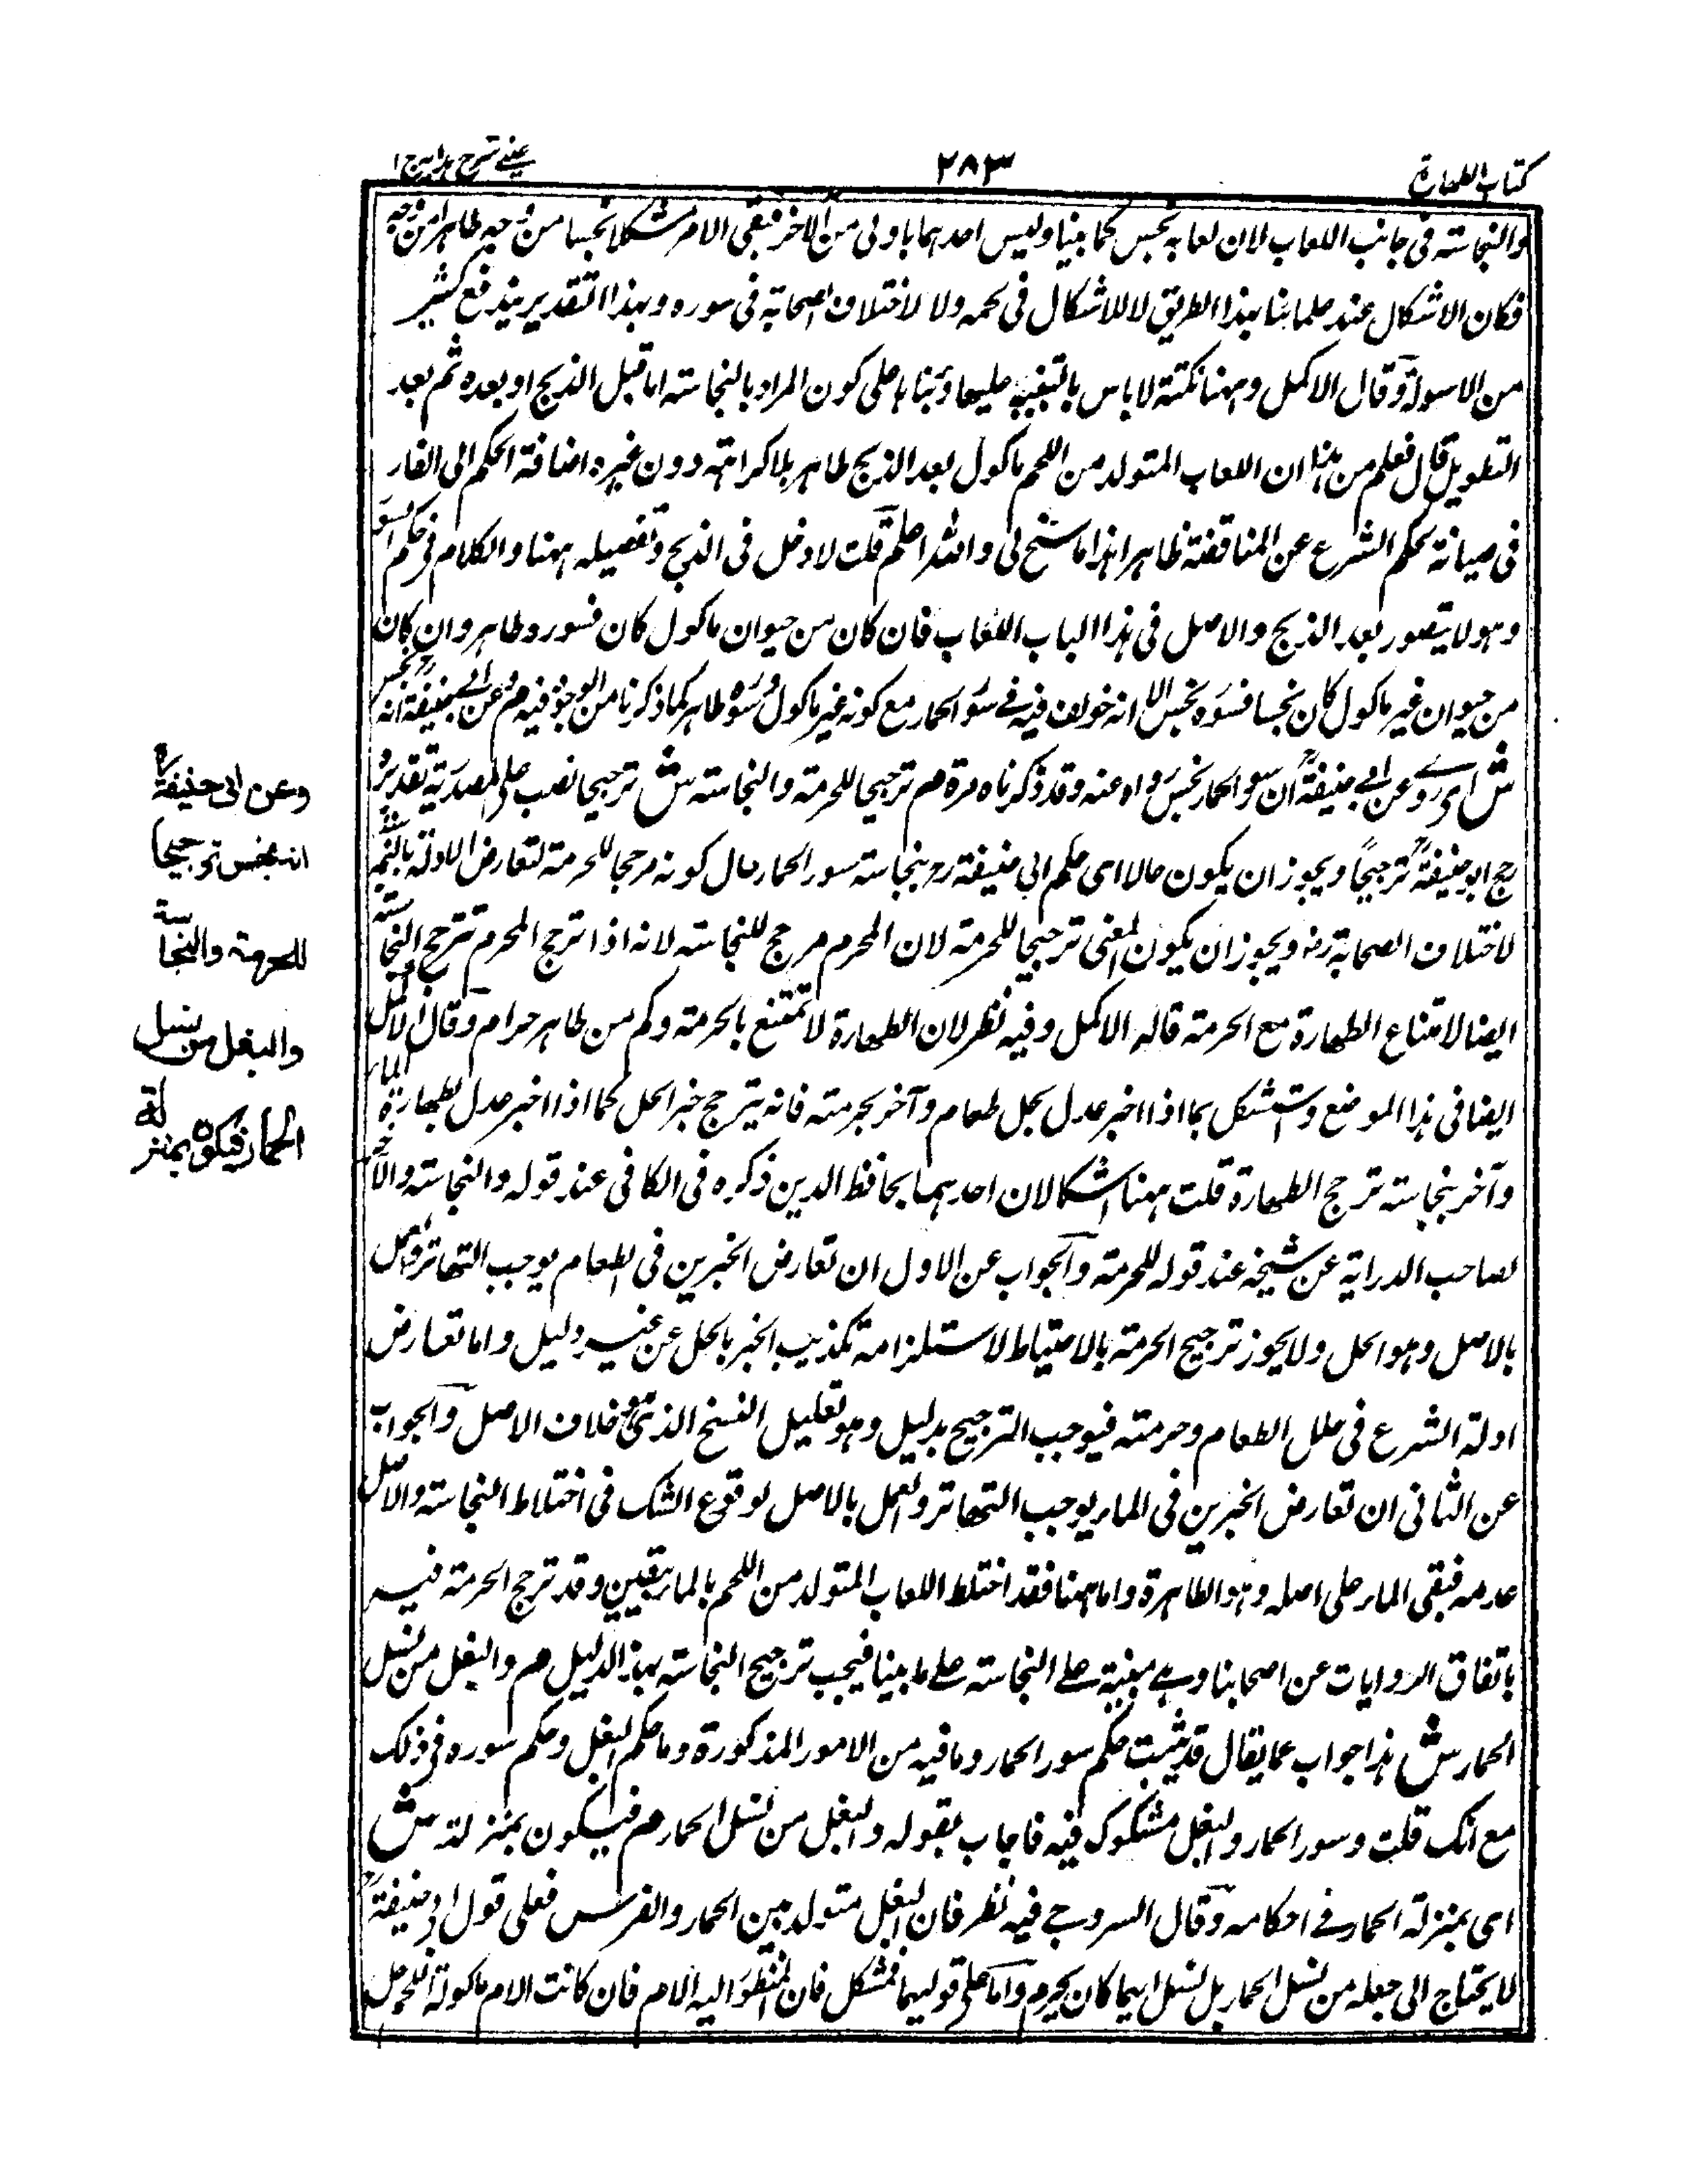 كتاب الطهارة
٢٨٣
عينى شرح هدايه ج ١
والنجاسة فى جانب اللعاب لان لعابه نجس كما بينا وليس احدهما باولى من الآخر فبقى الامر مشكلا نجسا من وجه طاهرا من وجه
فكان الاشكال عند علمائنا بهذا الطريق لا للاشكال فى لحمه ولا لاختلاف الصحابة فى سوره وبهذا التقدير يندفع كثير
من الاسولة وقال الاكمل وههنا نكتة لا باس بالتنبيه عليها وبناها على كون المراد بالنجاسة اما قبل الذبح او بعده ثم بعد
التطويل قال فعلم من هذا ان اللعاب المتولد من اللحم ماكول بعد الذبح طاهر بلا كراهة دون غيره اضافة الحكم الى الفار
فى صيانة لحكم الشرع عن المناقضة ظاهرا هذا ما سنح لى والله اعلم قلت لا دخل فى الذبح وتفصيله ههنا والكلام فى حكم السور
وهو لا يتصور بعد الذبح والاصل فى هذا الباب اللعاب فان كان من حيوان ماكول كان فسوره طاهر وان كان
من حيوان غير ماكول كان نجسا فسوره نجس الا انه خولف فيه فى سور الحمار مع كونه غير ماكول وسوره طاهر كما ذكرنا من الوجوه فيه م وعن ابى حنيفة رح انه نجس
ش اى روى عن ابى حنيفة رح ان سور الحمار نجس رواه عنه وقد ذكرناه مرة م ترجيحا للحرمة والنجاسة ش ترجيحا نصب على المصدرية تقديره
رجح ابو حنيفة رح ترجيحًا ويجوز ان يكون حالا اى حكم ابى حنيفة رح بنجاسة سور الحمار حال كونه مرجحا للحرمة لتعارض الادلة بالنسبة
لاختلاف الصحابة رض ويجوز ان يكون المعنى ترجيحا للحرمة لان المحرم مرجح للنجاسة لانه اذا ترجح المحرم ترجح النجاسة
ايضا لامتناع الطهارة مع الحرمة قاله الاكمل وفيه نظر لان الطهارة لا تمتنع بالحرمة وكم من طاهر حرام وقال الاكمل
ايضا فى هذا الموضع واستشكل بما اذا اخبر عدل بحل طعام وآخر بحرمته فانه يترجح خبر الحل كما اذا اخبر عدل بطهارة الماء
وآخر بنجاسته ترجح الطهارة قلت ههنا اشكالان احدهما لحافظ الدين ذكره فى الكافى عند قوله والنجاسة والآخر
لصاحب الدراية عن شيخه عند قوله للحرمة والجواب عن الاول ان تعارض الخبرين فى الطعام يوجب التهاتر والعمل
بالاصل وهو الحل ولا يجوز ترجيح الحرمة بالاحتياط لاستلزامه تكذيب الخبر بالحل عن غير دليل واما تعارض
ادلة الشرع فى حل الطعام وحرمته فيوجب الترجيح بدليل وهو تعليل النسخ الذى هو خلاف الاصل والجواب
عن الثانى ان تعارض الخبرين فى الماء يوجب التهاتر والعمل بالاصل لوقوع الشك فى اختلاط النجاسة والاصل
عدمه فبقى الماء على اصله وهو الطاهرة واما ههنا فقد اختلط اللعاب المتولد من اللحم بالماء بيقين وقد ترجح الحرمة فيه
باتفاق الروايات عن اصحابنا وهى مبنية على النجاسة على ما بينا فيجب ترجيح النجاسة بهذا الدليل م والبغل من نسل
الحمار ش هذا جواب عما يقال قد ثبت حكم سور الحمار وما فيه من الامور المذكورة وما حكم البغل وحكم سوره فى ذلك
مع انك قلت وسور الحمار والبغل مشكوك فيه فاجاب بقوله والبغل من نسل الحمار م فيكون بمنزلته ش
اى بمنزلة الحمار فى احكامه وقال السروجى فيه نظر فان البغل متولد بين الحمار والفرس فعلى قول ابى حنيفة رح
لا يحتاج الى جعله من نسل الحمار بل نسل ايهما كان يحرم واما على قوليهما فمشكل فان المنظور اليه الام فان كانت الام ماكولة اللحم حل
وعن ابى حنيفة رح
انه نجس ترجيحا
للحرمة والنجاسة
والبغل من نسل
الحمار فيكون بمنزلته